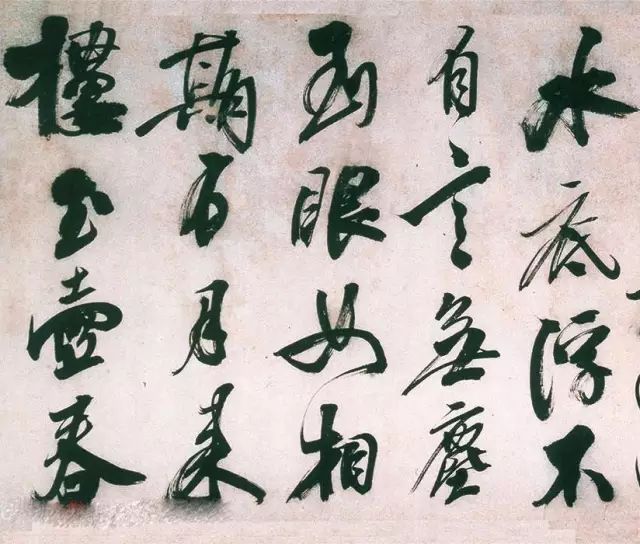 水底浮不
自言無塵
到眼如相
期有月来
樓玉壺春